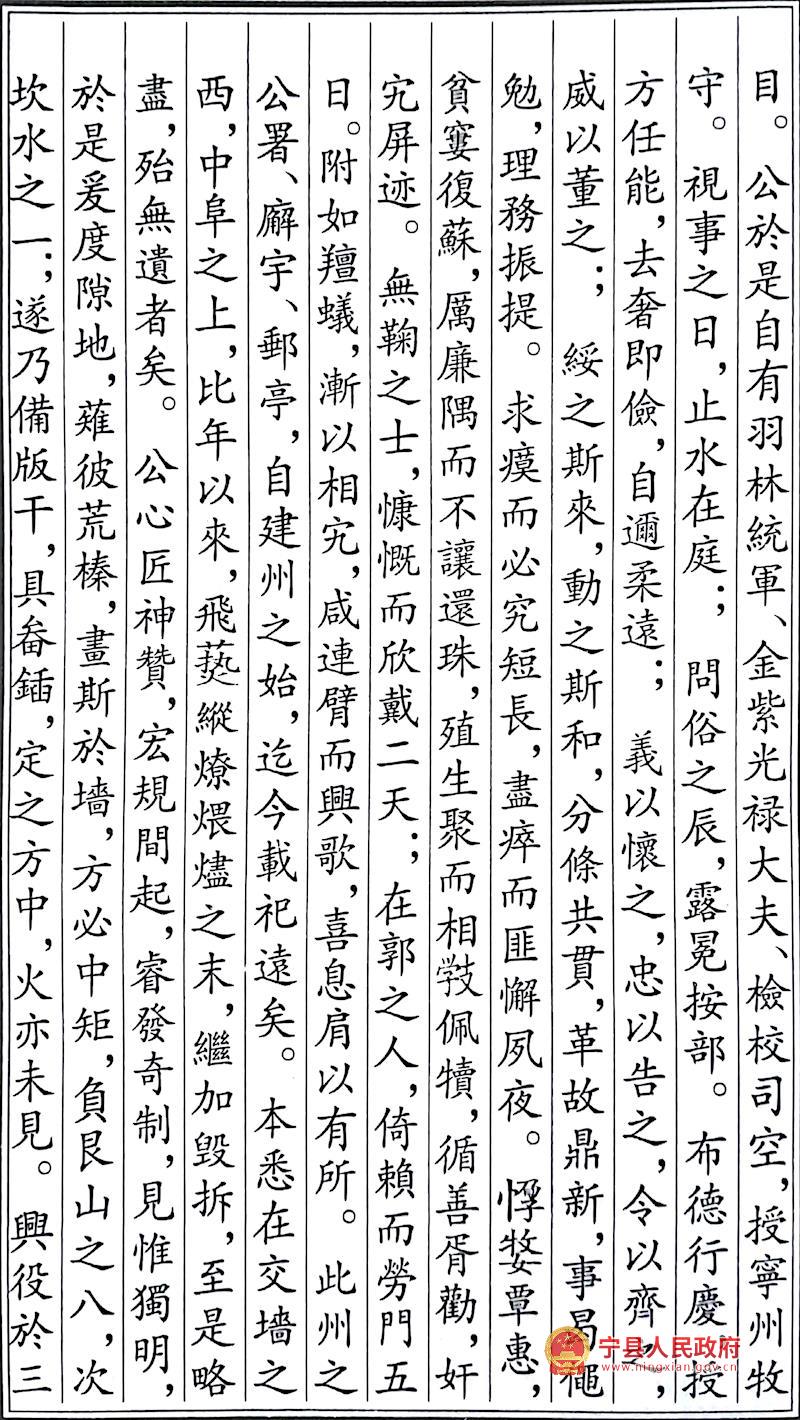 目。公於是自有羽林統軍、金紫光禄大夫、檢校司空,授寧州牧
守。視事之日,止水在庭;問俗之辰,露冕按部。布德行慶,授
方任能,去奢即儉,自邇柔遠;義以懷之,忠以告之,令以齊之,
威以董之;綏之斯來,動之斯和,分條共貫,革故鼎新,事易繩
勉,理務振提。求瘼而必究短長,盡瘁而匪懈夙夜。惸嫠覃惠,
貧窶復蘇,厲廉隅而不讓還珠,殖生聚而相斅佩犢,循善胥勸,奸
宄屏迹。無鞠之士,慷慨而欣戴二天;在郭之人,倚賴而勞門五
日。附如羶蟻,漸以相宄,咸連臂而興歌,喜息肩以有所。此州之
公署、廨宇、郵亭,自建州之始,迄今載祀遠矣。本悉在交墙之
西,中阜之上,比年以來,飛爇縱燎煨燼之末,繼加毁拆,至是略
盡,殆無遺者矣。公心匠神贊,宏規間起,睿發奇制,見惟獨明,
於是爰度隙地,薙彼荒榛,畫斯於墻,方必中矩,負艮山之八,次
坎水之一;遂乃備版干,具畚鍤,定之方中,火亦未見。興役於三
宁县人民政府
www.ningxian.gov.cn